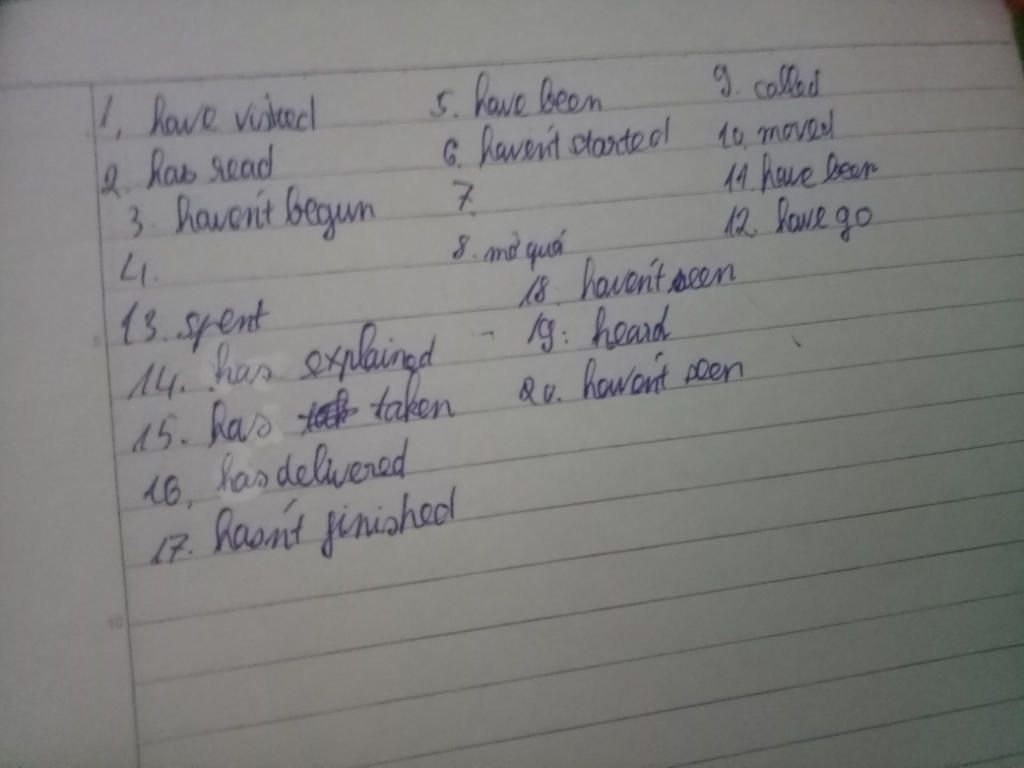 1, have visited
2. has read
3. haven't begun
4.
5. have been
6. haven't started
7.
8. mờ quá
9. called
10. moved
11 have been
12. have go
13. spent
14. has explained
15. has taken
16, has delivered
17. hasn't finished
18. haven't seen
19: heard
20. haven't seen
10